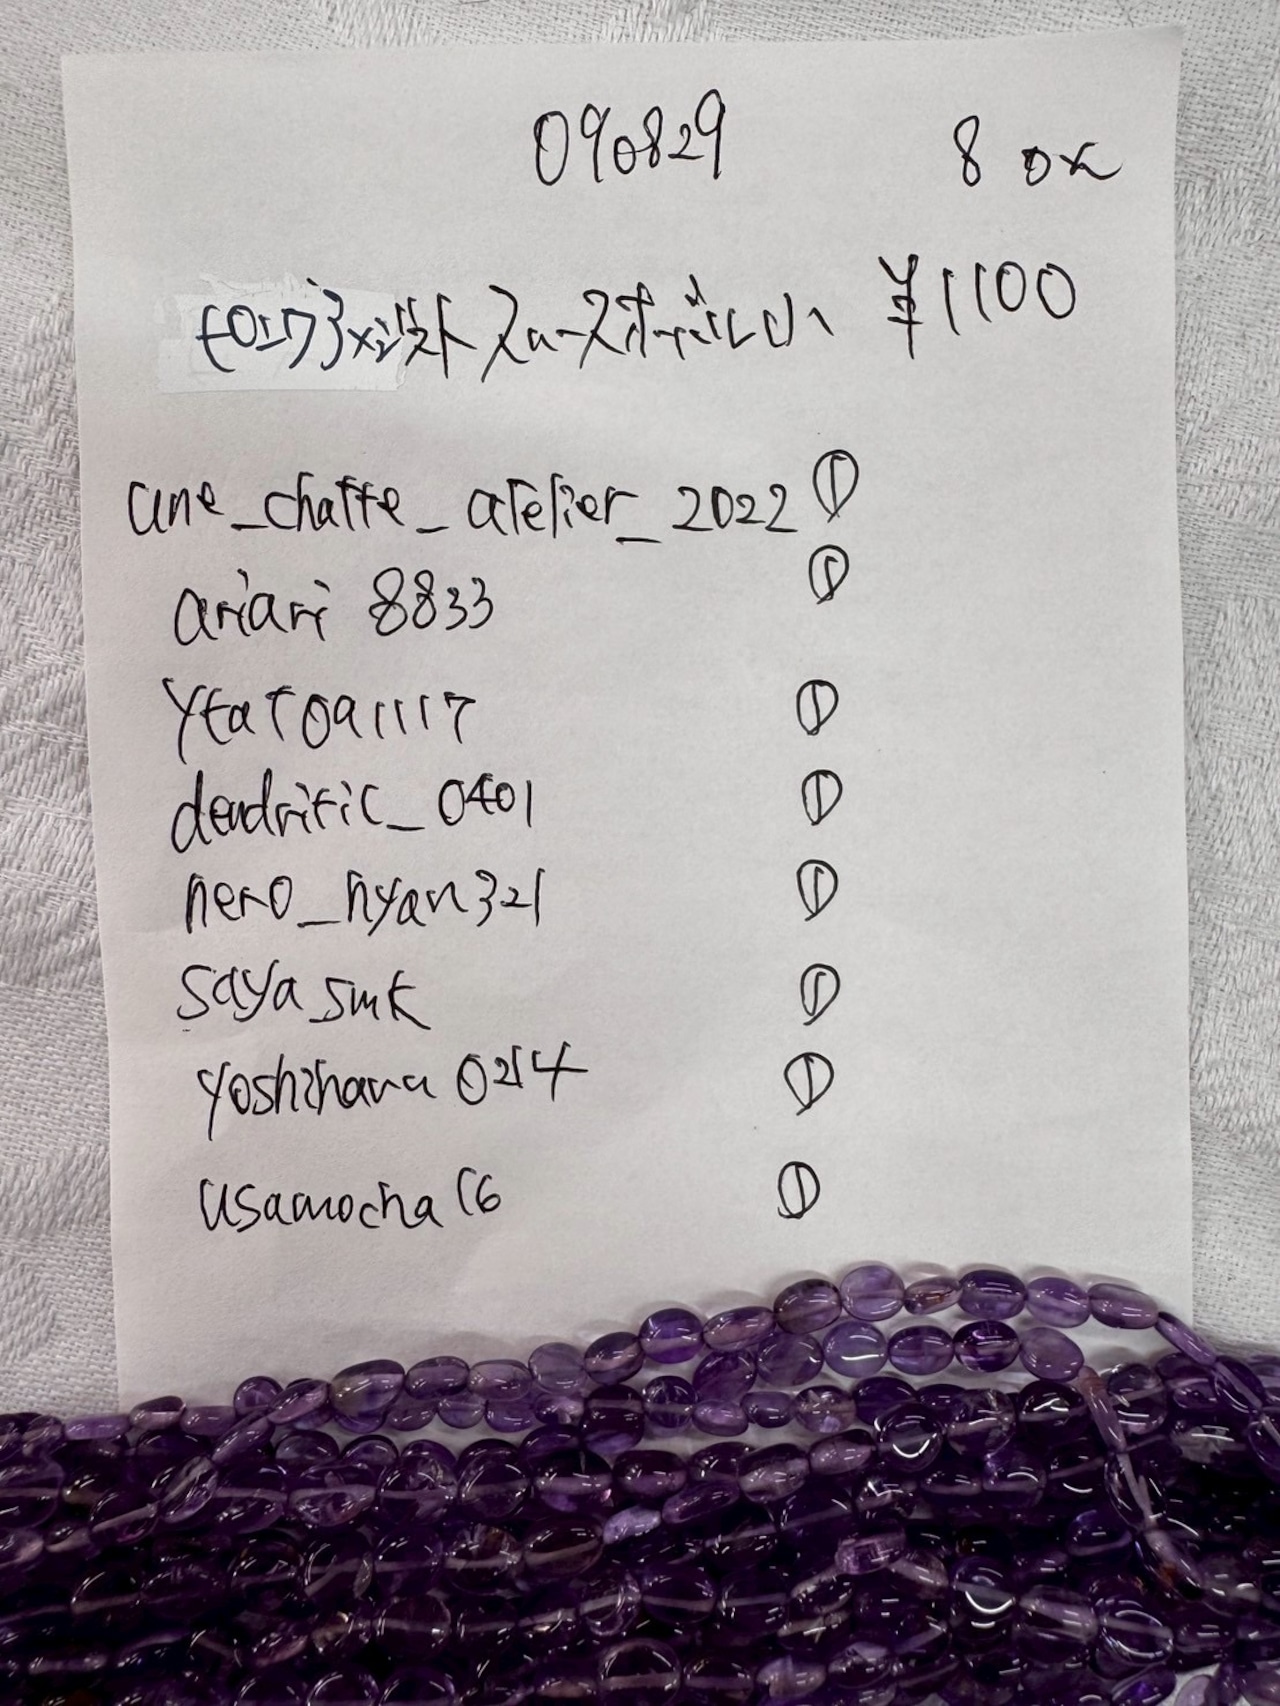 090829 8
アメジストスムースオーバル小 ¥1100
une_chatte_atelier_2022 ①
ariari 8833 ①
ytatoa1117 ①
dendritic_0401 ①
nero_nyan321 ①
saya_smk ①
yoshihara 0214 ①
usamocha 16 ①